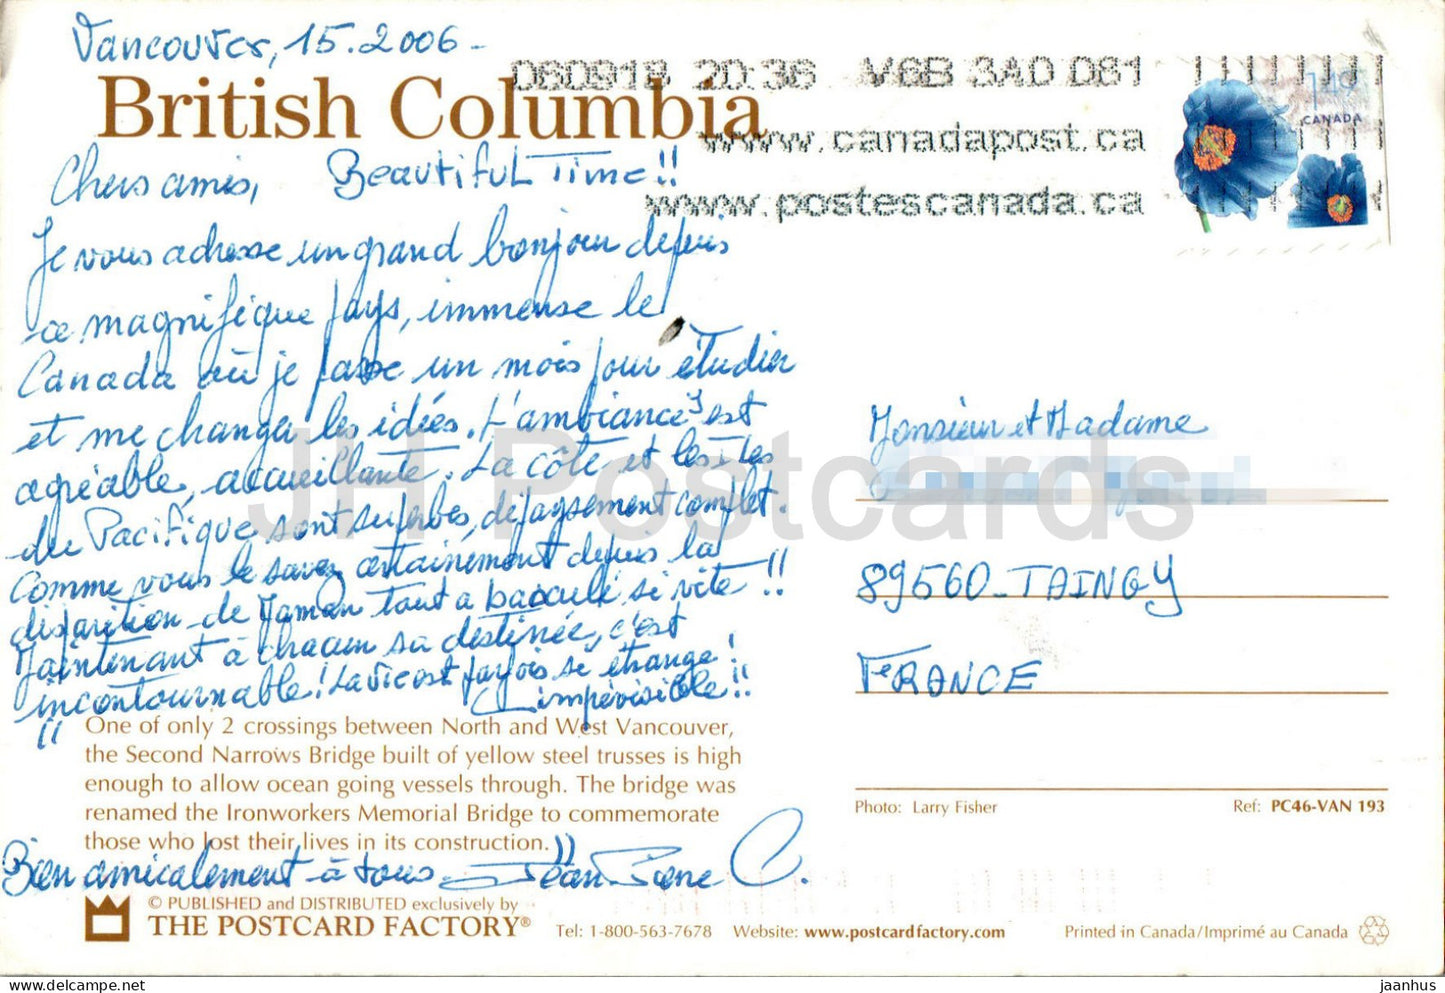 Vancouver, 15.2006-
British Columbia
060918 20:36 V6B 3A0 061
www.canadapost.ca
www.postescanada.ca
149
CANADA
Chers amis, Beautiful Time!!
Je vous adresse un grand bonjour depuis
ce magnifique pays, immense le
Canada où je passe un mois pour étudier
et me changer les idées. L'ambiance est
agréable, accueillante. La côte et les îles
du Pacifique, sont superbes, dépaysement complet.
Comme vous le savez certainement depuis la
disparition de Maman tout a basculé si vite!!
Maintenant à chacun sa destinée, c'est
incontournable! La vie est parfois si étrange!
imprévisible!!
Monsieur et Madame
89560-TAINGY
FRANCE
One of only 2 crossings between North and West Vancouver,
the Second Narrows Bridge built of yellow steel trusses is high
enough to allow ocean going vessels through. The bridge was
renamed the Ironworkers Memorial Bridge to commemorate
those who lost their lives in its construction.
Photo: Larry Fisher Ref: PC46-VAN 193
Bien amicalement à tous. Jean Pierre C.
© PUBLISHED and DISTRIBUTED exclusively by
THE POSTCARD FACTORY® Tel: 1-800-563-7678 Website: www.postcardfactory.com Printed in Canada/Imprimé au Canada
JH Postcards
delcampe.net
jaanhus